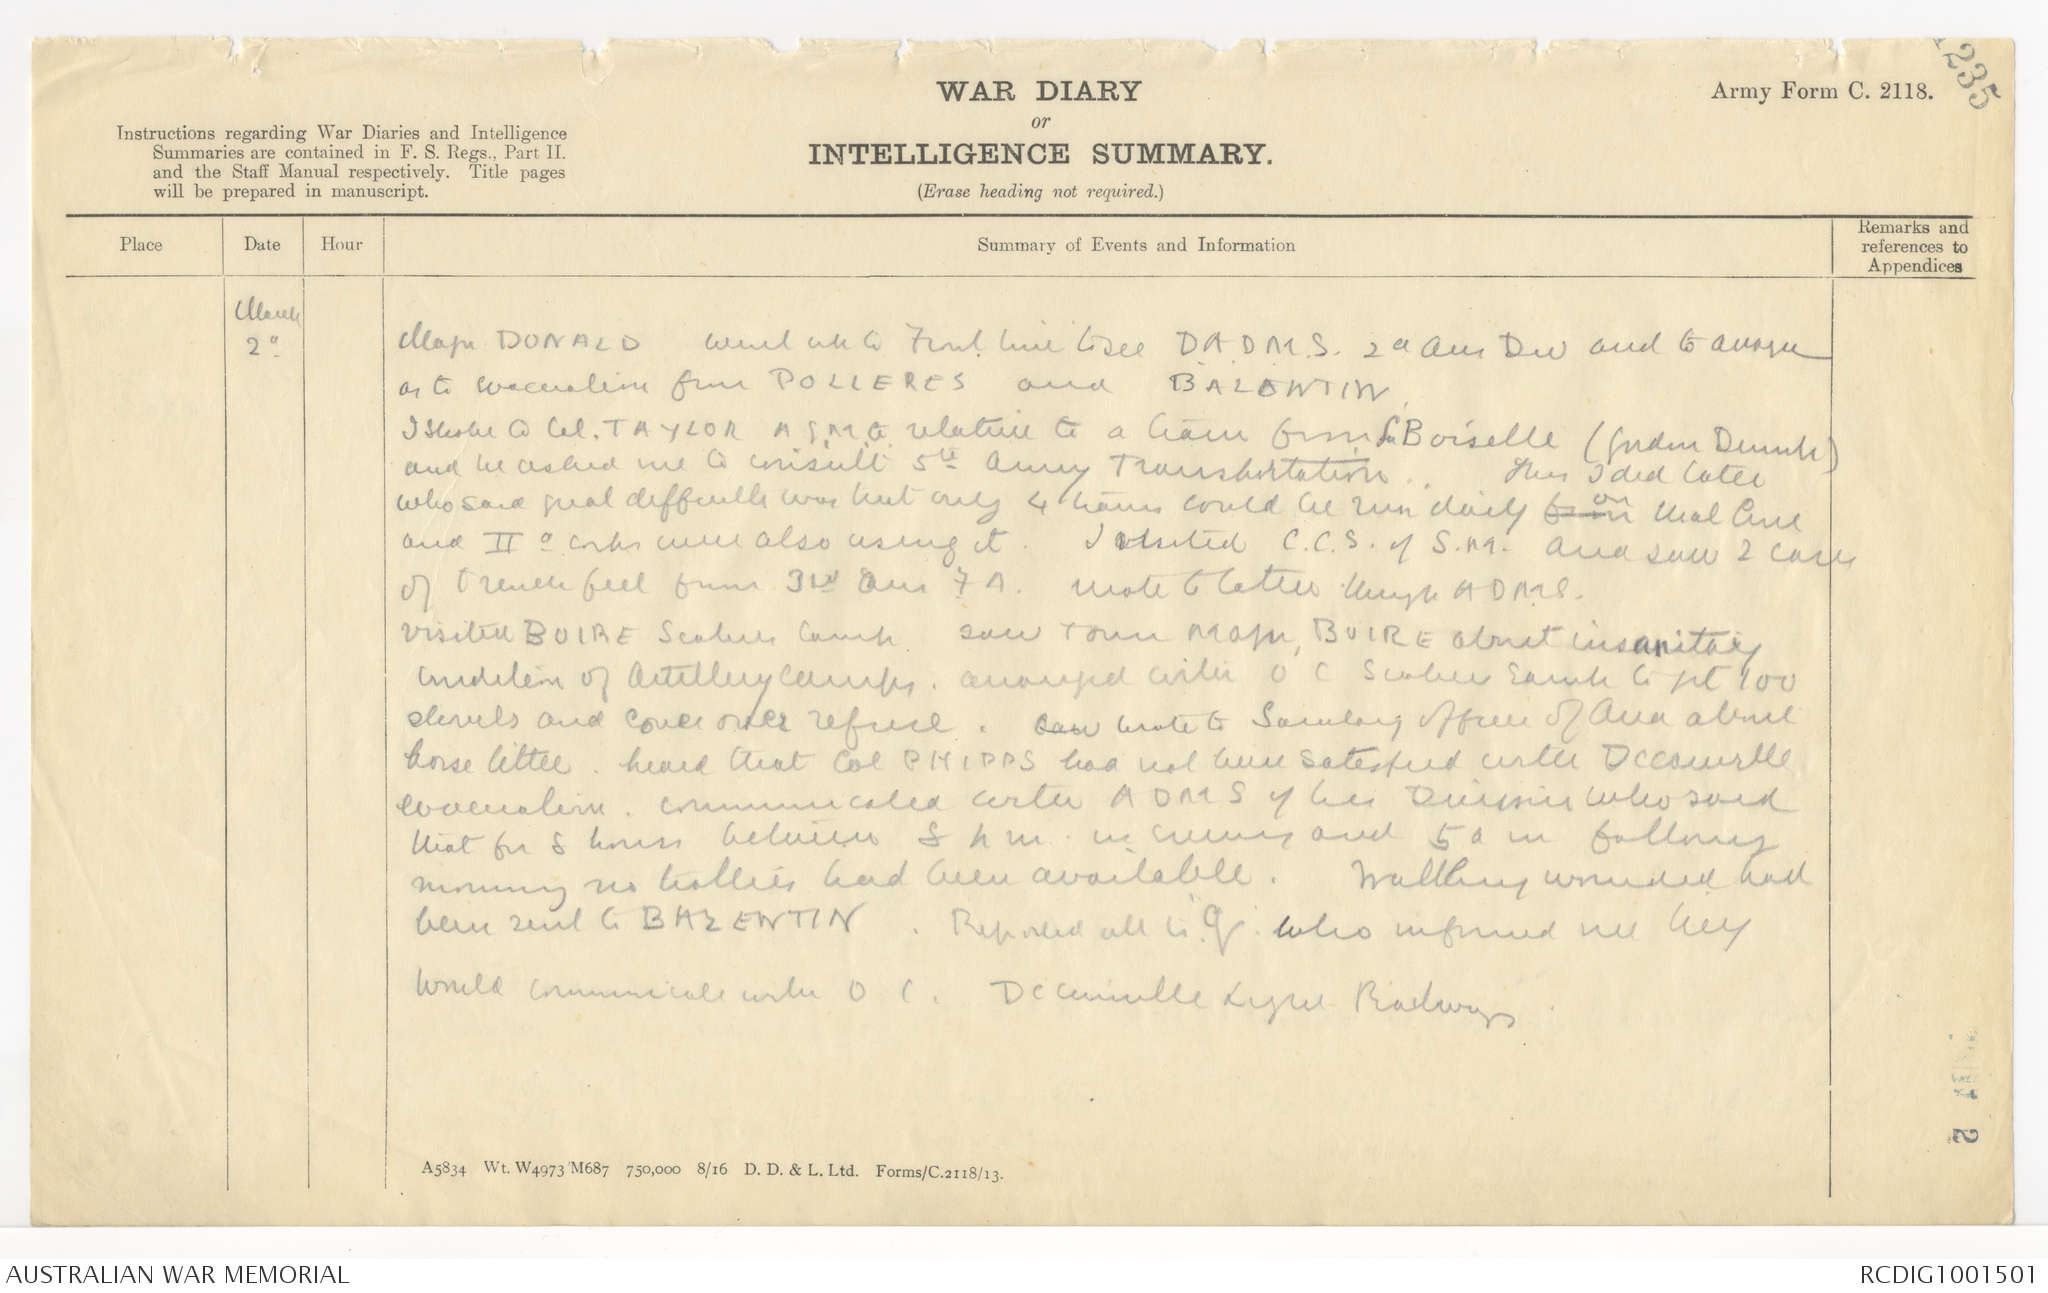 1235
WAR DIARY
or
INTELLIGENCE SUMMARY.
(Erase heading not required.)
Army Form C. 2118.
Instructions regarding War Diaries and Intelligence
Summaries are contained in F. S. Regs., Part II.
and the Staff Manual respectively. Title pages
will be prepared in manuscript.
Place
Date
Hour
Summary of Events and Information
Remarks and
references to
Appendices
March
2nd
Major DONALD went up to Front line to see D.A.D.M.S. 2nd Aus Div and to arrange
as to evacuation from POZIERES and BAZENTIN.
I spoke to Col. TAYLOR AQMG relative to a train from La Boiselle (Gordon Dump)
and he asked me to consult 5th Army Transportation. This I did later
who said great difficulty was that only 4 trains could be run daily from on that line
and IInd Corps were also using it. I visited C.C.S. of S.M. and saw 2 cases
of trench feet from 3rd Aus FA. Wrote to latter through ADMS.
Visited BUIRE Scabies Camp saw Town Major, BUIRE about insanitary
condition of Artillery Camps. arranged with O C Scabies Camp to get 100
shovels and cover over refuse. Saw wrote to Sanitary Officer of Area about
horse litter. heard that Col PHIPPS had not been satisfied with Decauville
evacuation. communicated with ADMS of his Division who said
that for 8 hours between 8 p m in evening and 5 a m following
morning no trollies had been available. Walking wounded had
been sent to BAZENTIN. Reported all to "Q" who informed me they
would communicate with O C. Decauville Light Railways.
2
A5834 Wt. W4973/M687 750,000 8/16 D. D. & L. Ltd. Forms/C.2118/13.
AUSTRALIAN WAR MEMORIAL
RCDIG1001501